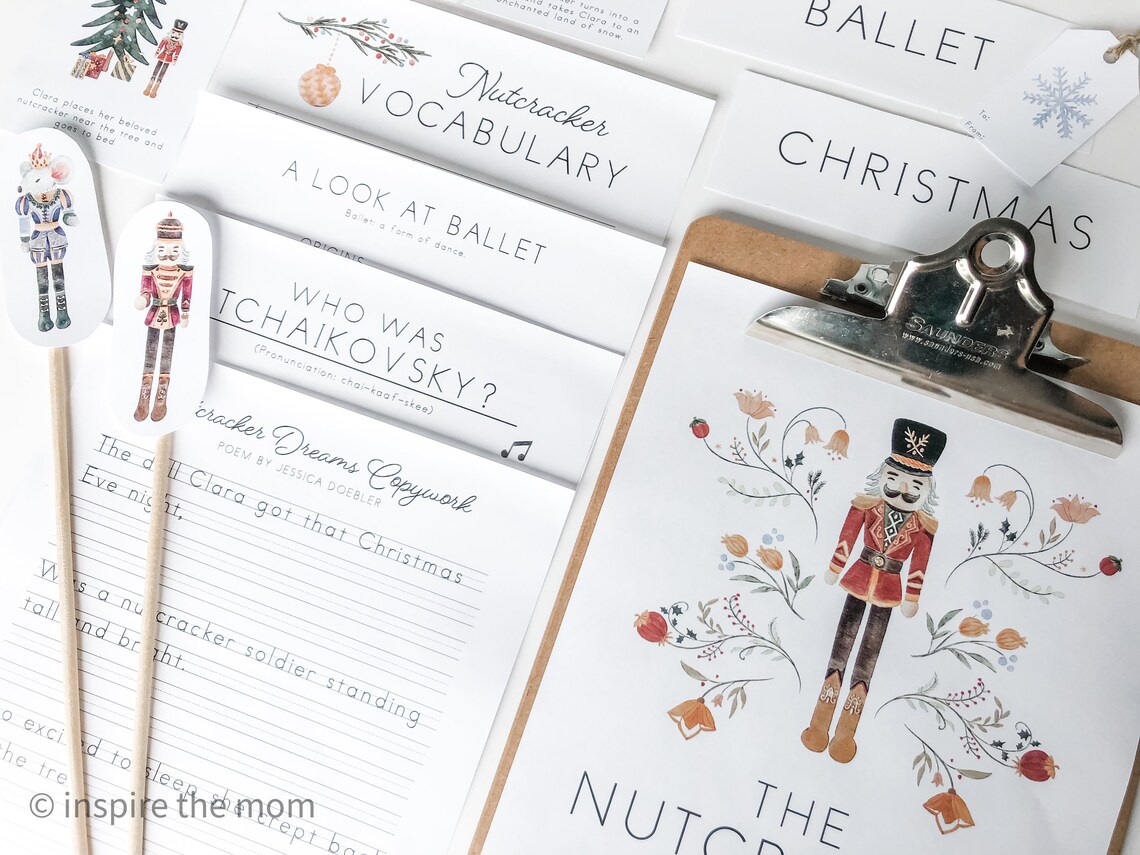 turns into a
and takes Clara to an
enchanted land of snow.
BALLET
To:
From:
CHRISTMAS
Clara places her beloved
nutcracker near the tree and
goes to bed
Nutcracker
VOCABULARY
A LOOK AT BALLET
Ballet: a form of dance.
ORIGINS
WHO WAS
TCHAIKOVSKY?
(Pronunciation: chai-kaaf-skee)
Dreams Copywork
POEM BY JESSICA DOEBLER
The doll Clara got that Christmas
Eve night,
Was a nutcracker soldier standing
tall and bright.
excited to sleep she crept back
the tree
SAUNDERS
www.saunders-usa.com
THE
© inspire the mom